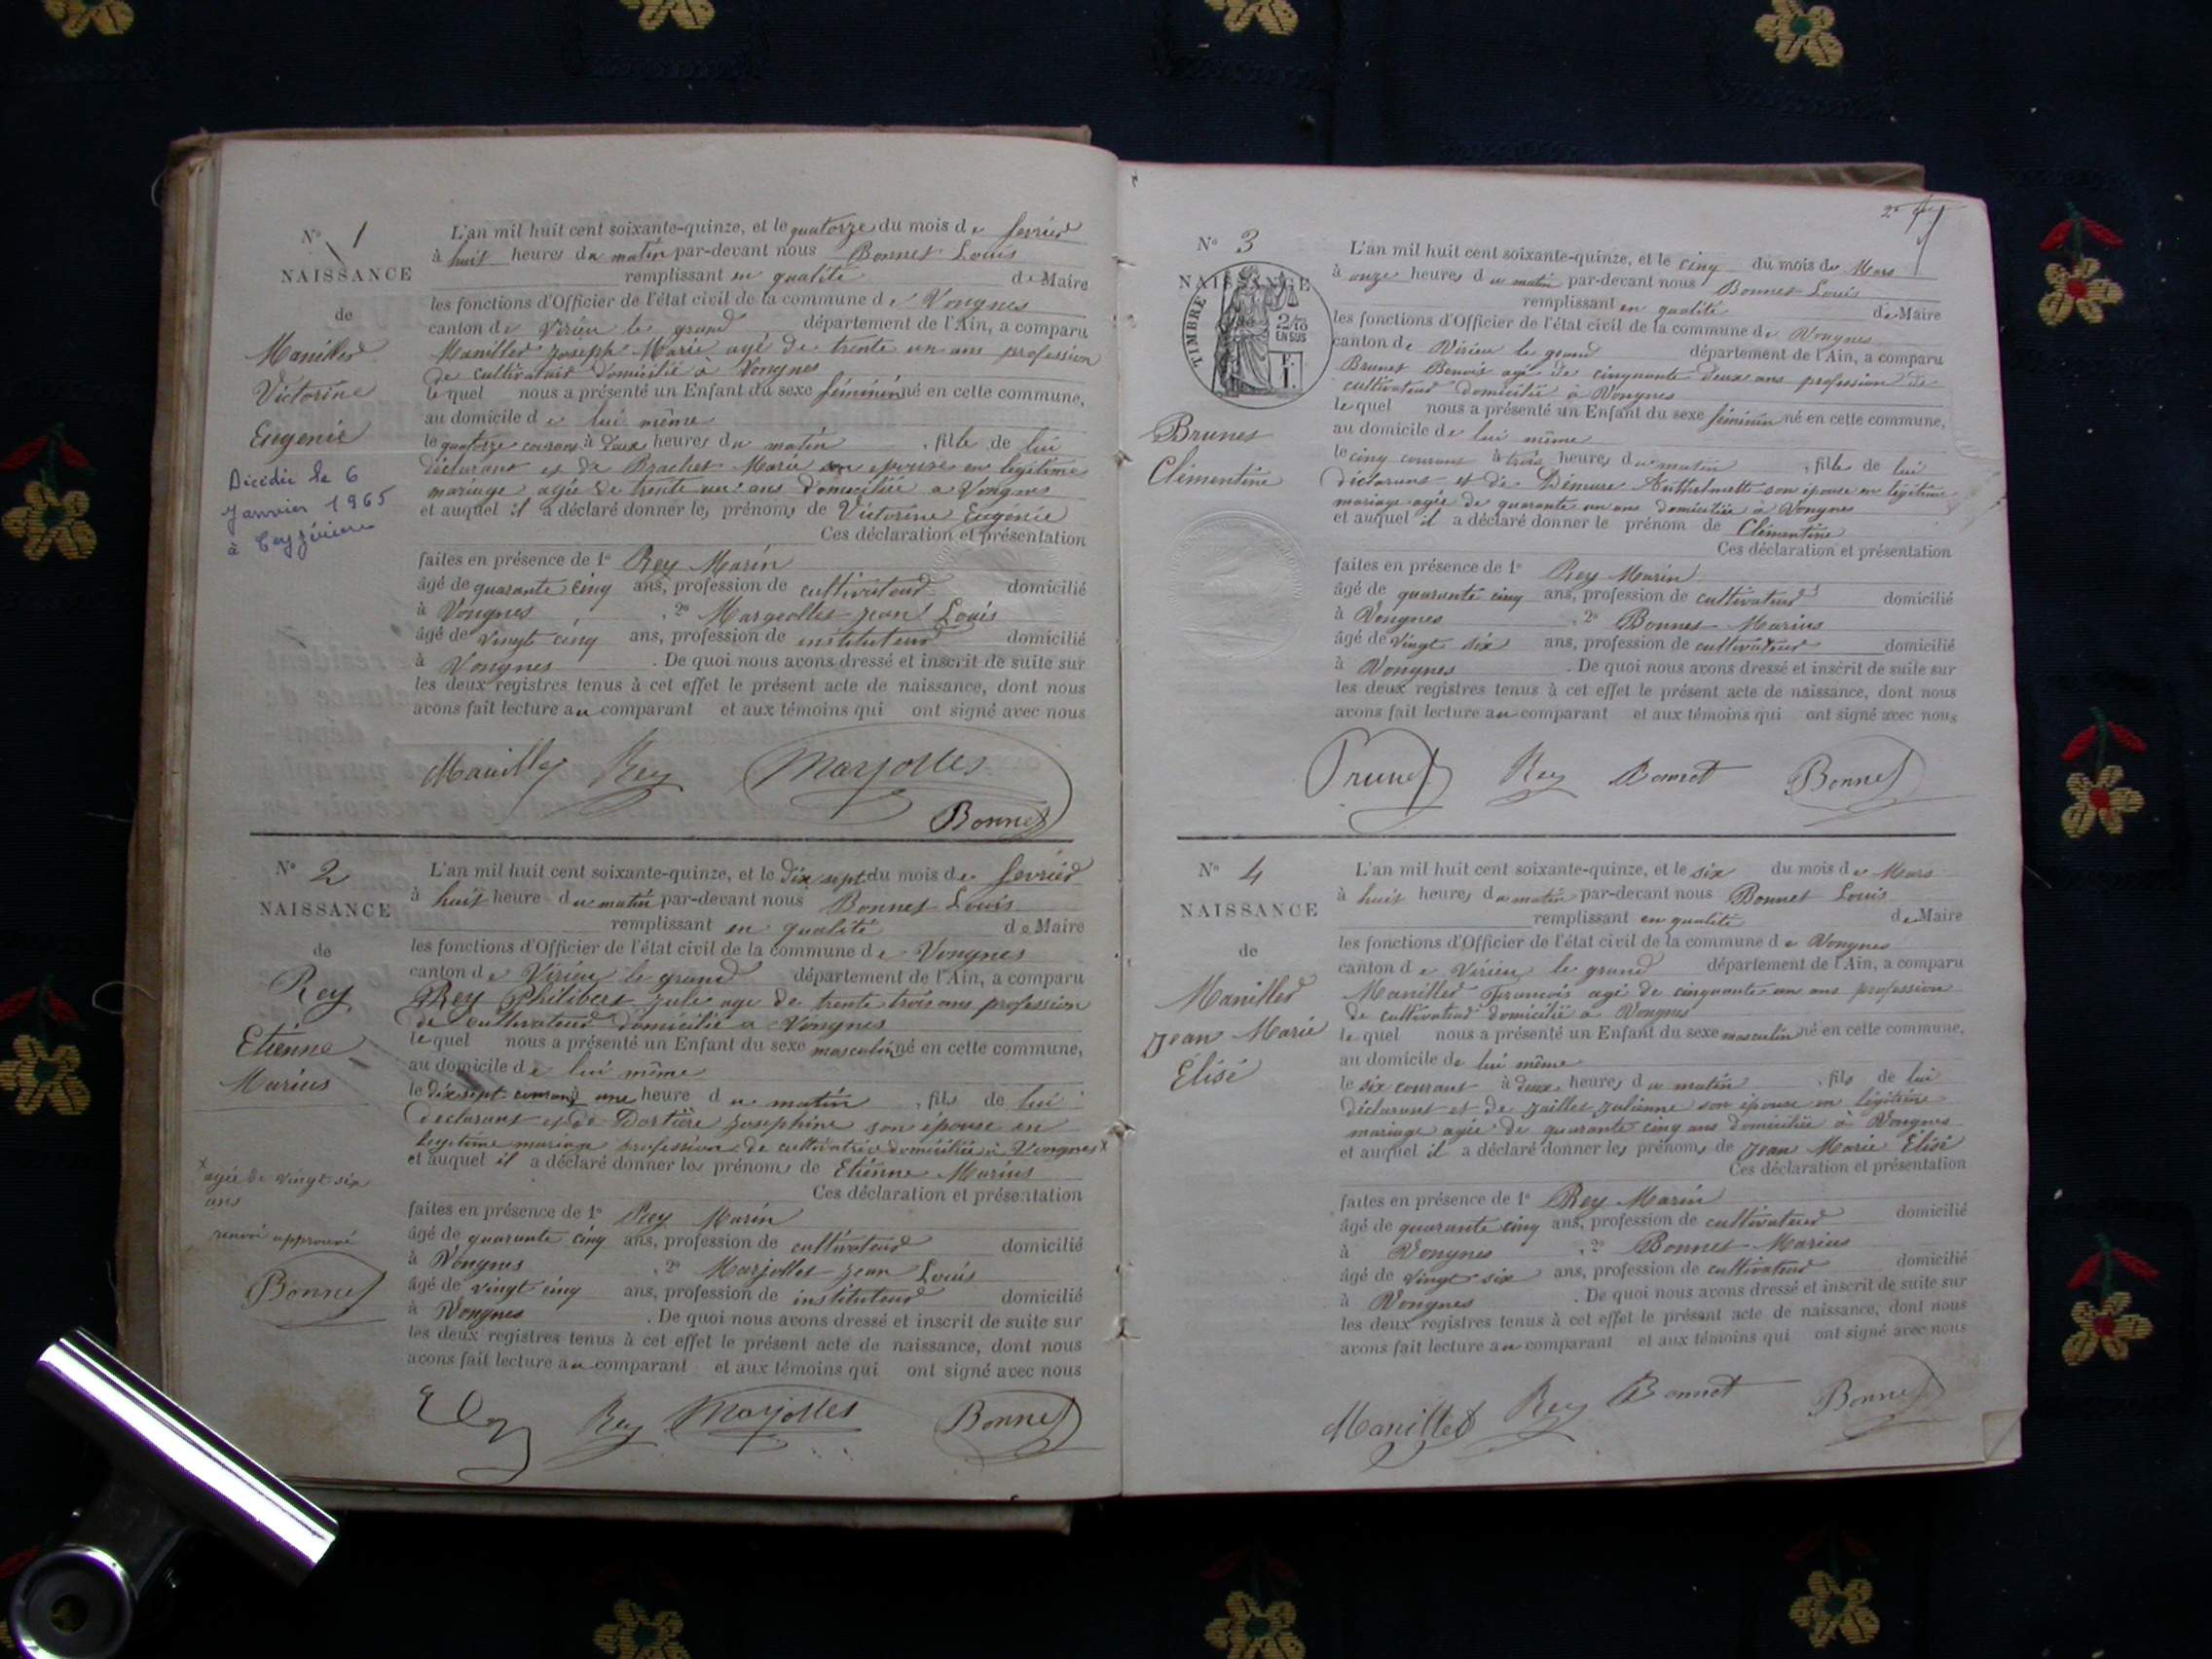 N° 1
NAISSANCE
de
Manillier
Victorine
Eugenie
Décédée le 6
Janvier 1965
à Ceyzérieu
L'an mil huit cent soixante-quinze, et le quatorze du mois de fevrier
à huit heures du matin par-devant nous Bonnet Louis
remplissant en qualité de Maire
les fonctions d'Officier de l'état civil de la commune de Vongnes
canton de Virieu le grand département de l'Ain, a comparu
Joseph Marie agé de trente un ans profession
de cultivateur domicilié à Vongnes
lequel nous a présenté un Enfant du sexe féminin né en cette commune,
au domicile de lui même
le quatorze courant à deux heures du matin, fille de lui
déclarant et de Brachet Marie son épouse en légitime
mariage agée de trente un ans domiciliée à Vongnes
et auquel il a déclaré donner les prénoms de Victorine Eugénie
Ces déclaration et présentation
faites en présence de 1° Rey Marin
âgé de quarante cinq ans, profession de cultivateur domicilié
à Vongnes, 2° Margeolles jean Louis
âgé de vingt cinq ans, profession de instituteur domicilié
à Vongnes. De quoi nous avons dressé et inscrit de suite sur
les deux registres tenus à cet effet le présent acte de naissance, dont nous
avons fait lecture au comparant et aux témoins qui ont signé avec nous
Rey Marjolles
Bonnet
N° 2
NAISSANCE
de
Rey
Etienne
Marius
x agée de vingt six
ans
renvoi approuvé
Bonnet
L'an mil huit cent soixante-quinze, et le dix sept du mois de fevrier
à huit heure du matin par-devant nous Bonnet Louis
remplissant en qualité de Maire
les fonctions d'Officier de l'état civil de la commune de Vongnes
canton de Virieu le grand département de l'Ain, a comparu
Rey Philibert jule agé de trente trois ans profession
de cultivateur domicilié à Vongnes
lequel nous a présenté un Enfant du sexe masculin né en cette commune,
au domicile de lui même
le dix sept courant à une heure du matin, fils de lui
déclarant et de Josephine son épouse en
légitime mariage profession de cultivatrice domiciliée à Vongnes x
et auquel il a déclaré donner les prénoms de Etienne Marius
Ces déclaration et présentation
faites en présence de 1° Rey Marin
âgé de quarante cinq ans, profession de cultivateur domicilié
à Vongnes, 2° Marjolles jean Louis
âgé de vingt cinq ans, profession de instituteur domicilié
à Vongnes. De quoi nous avons dressé et inscrit de suite sur
les deux registres tenus à cet effet le présent acte de naissance, dont nous
avons fait lecture au comparant et aux témoins qui ont signé avec nous
Rey Marjolles Bonnet
N° 3
NAISSANCE
TIMBRE
2/10
EN SUS
Brunet
Clémentine
L'an mil huit cent soixante-quinze, et le cinq du mois de Mars
à onze heures du matin par-devant nous Bonnet Louis
remplissant en qualité de Maire
les fonctions d'Officier de l'état civil de la commune de Vongnes
canton de Virieu le grand département de l'Ain, a comparu
Brunet Benoit agé de cinquante deux ans profession de
cultivateur domicilié à Vongnes
lequel nous a présenté un Enfant du sexe féminin né en cette commune,
au domicile de lui même
le cinq courant à trois heures du matin, fille de lui
déclarant et de Demure Anthelmette son épouse en légitime
mariage agée de quarante un ans domiciliée à Vongnes
et auquel il a déclaré donner le prénom de Clémentine
Ces déclaration et présentation
faites en présence de 1° Rey Marin
âgé de quarante cinq ans, profession de cultivateur domicilié
à Vongnes, 2° Bonnet Marius
âgé de vingt six ans, profession de cultivateur domicilié
à Vongnes. De quoi nous avons dressé et inscrit de suite sur
les deux registres tenus à cet effet le présent acte de naissance, dont nous
avons fait lecture au comparant et aux témoins qui ont signé avec nous
Brunet Rey Bonnet Bonnet
N° 4
NAISSANCE
de
Manillier
Jean Marie
Élisé
L'an mil huit cent soixante-quinze, et le six du mois de Mars
à huit heures du matin par-devant nous Bonnet Louis
remplissant en qualité de Maire
les fonctions d'Officier de l'état civil de la commune de Vongnes
canton de Virieu le grand département de l'Ain, a comparu
François agé de cinquante un ans profession
de cultivateur domicilié à Vongnes
lequel nous a présenté un Enfant du sexe masculin né en cette commune,
au domicile de lui même
le six courant à deux heures du matin, fils de lui
déclarant et de Jaillet Julienne son épouse en légitime
mariage agée de quarante cinq ans domiciliée à Vongnes
et auquel il a déclaré donner les prénoms de Jean Marie Élisé
Ces déclaration et présentation
faites en présence de 1° Rey Marin
âgé de quarante cinq ans, profession de cultivateur domicilié
à Vongnes, 2° Bonnet Marius
âgé de vingt six ans, profession de cultivateur domicilié
à Vongnes. De quoi nous avons dressé et inscrit de suite sur
les deux registres tenus à cet effet le présent acte de naissance, dont nous
avons fait lecture au comparant et aux témoins qui ont signé avec nous
Rey Bonnet Bonnet